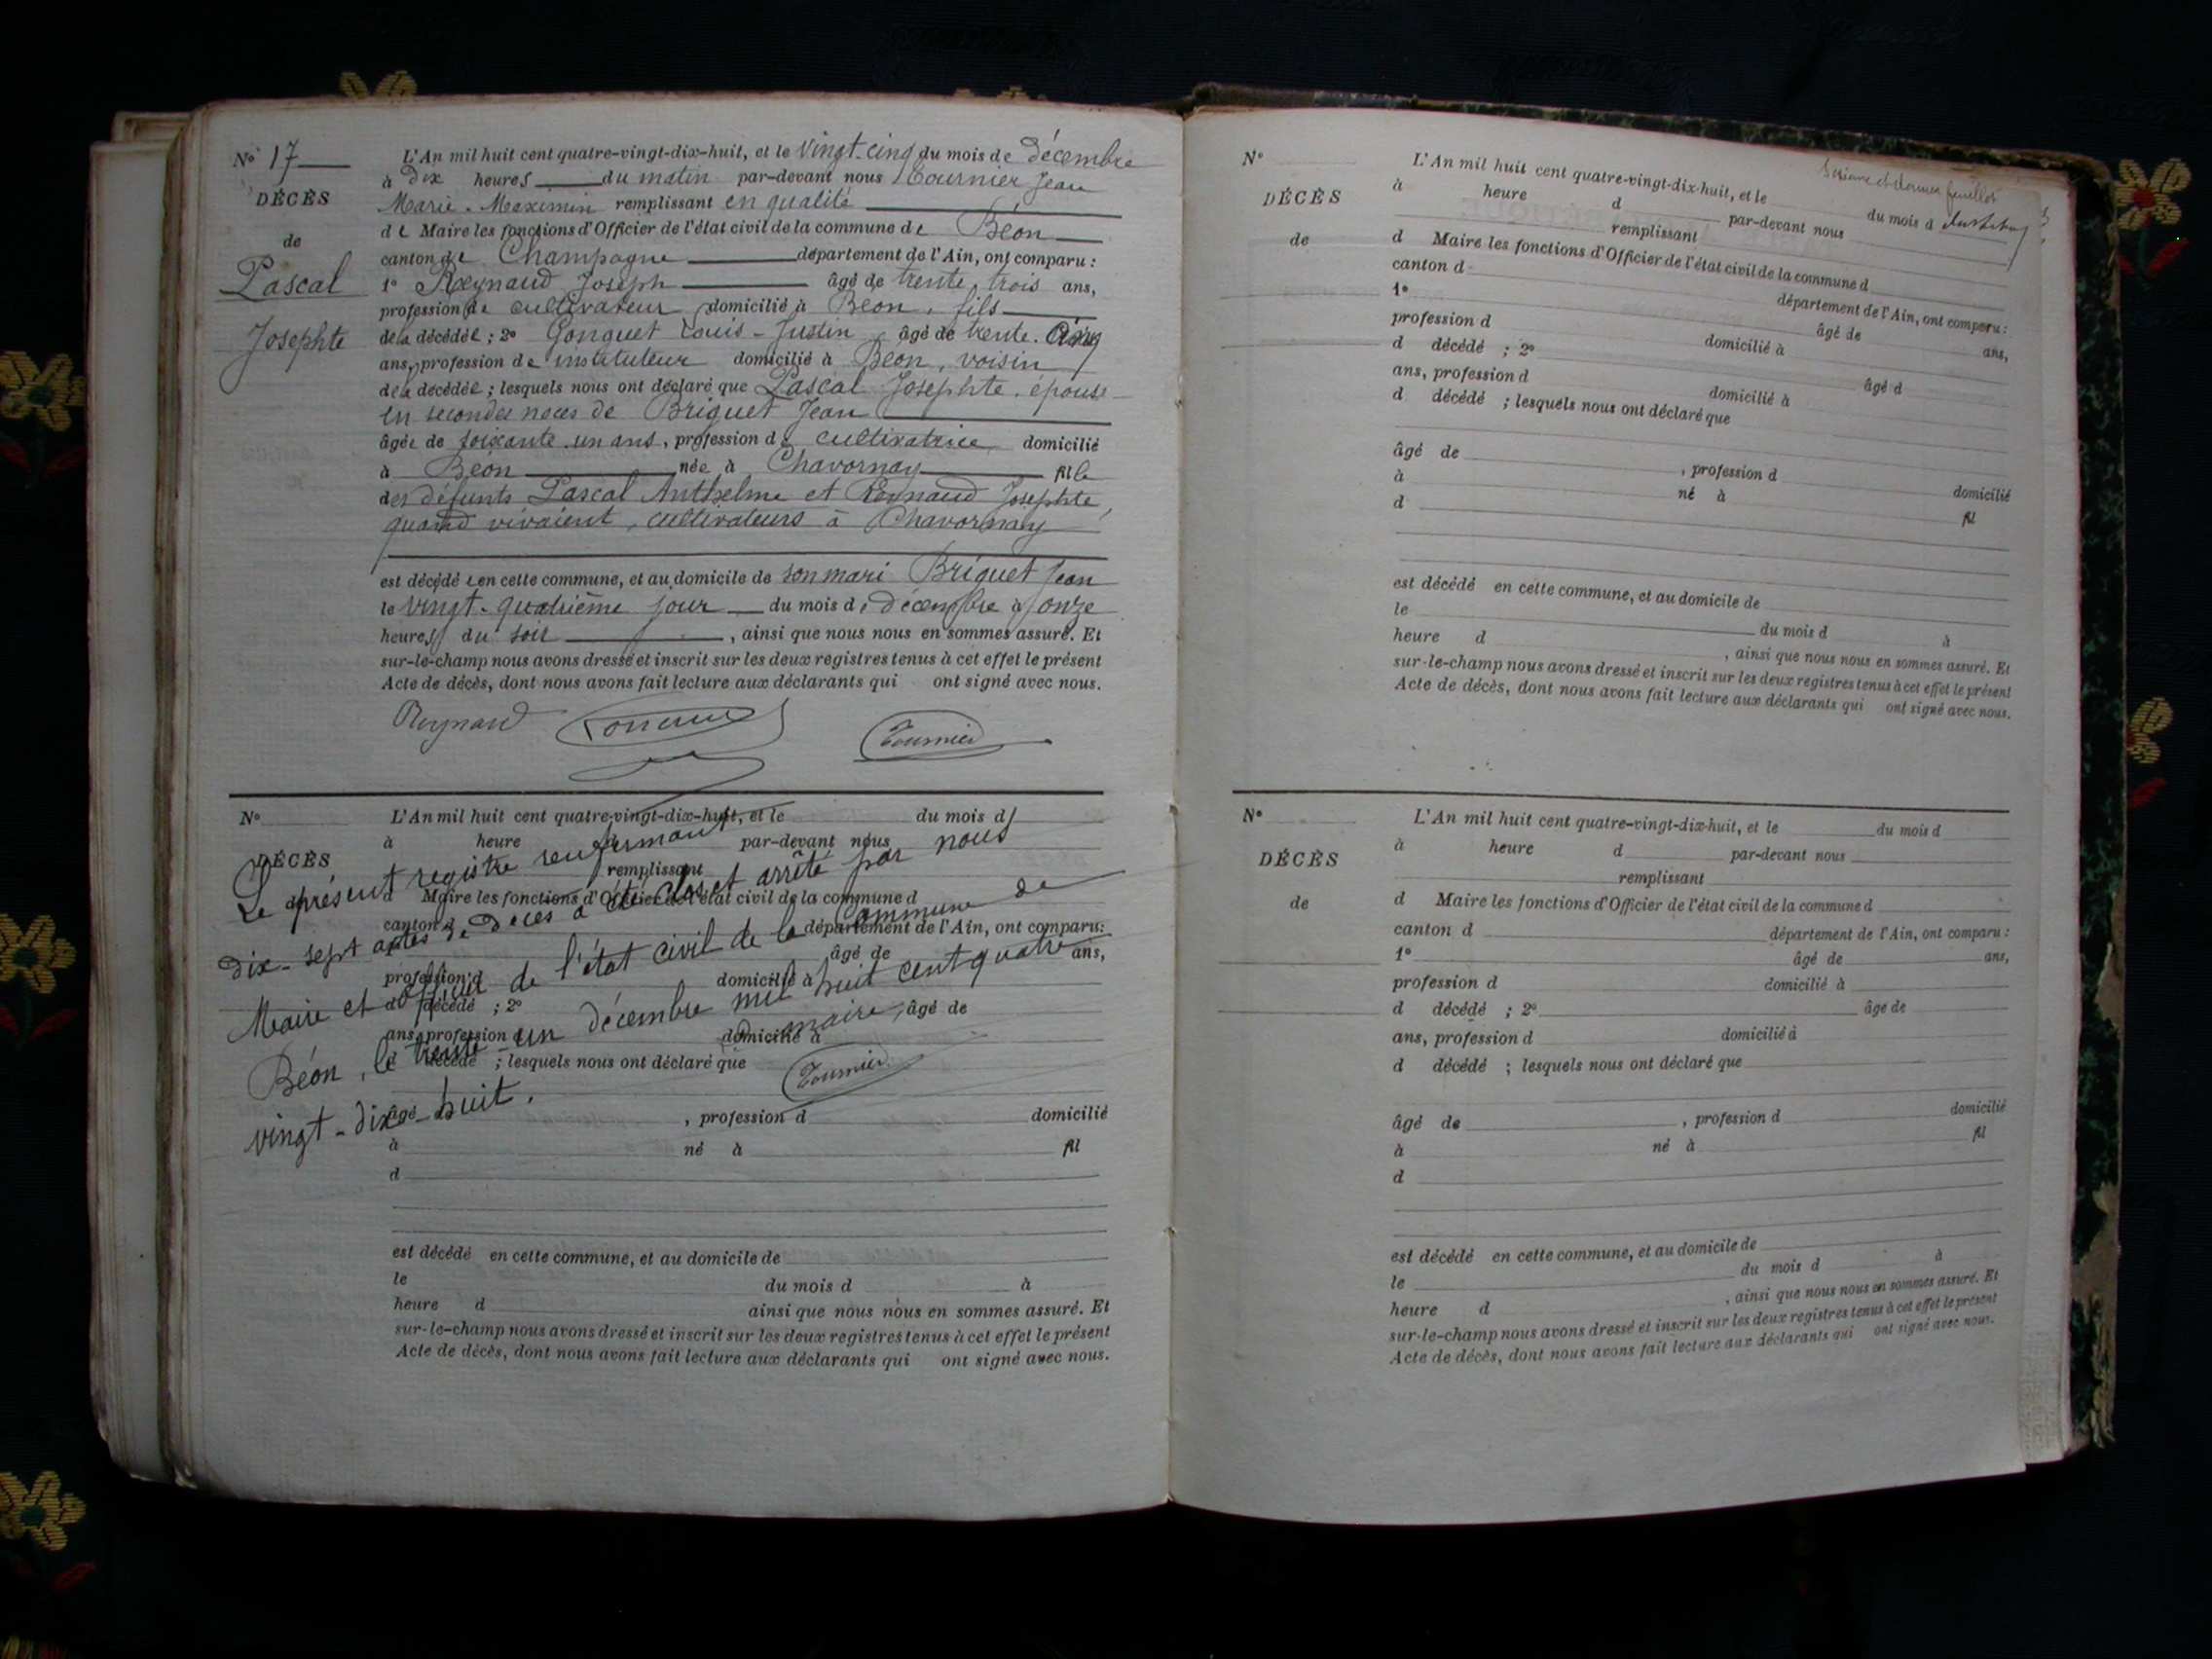 N° 17
DÉCÈS
de
Pascal
Josephte
L'An mil huit cent quatre-vingt-dix-huit, et le vingt-cinq du mois de décembre
à dix heures du matin par-devant nous Tournier Jean
Marie-Maximin remplissant en qualité
de Maire les fonctions d'Officier de l'état civil de la commune de Béon
canton de Champagne département de l'Ain, ont comparu :
1° Reynaud Joseph âgé de trente trois ans,
profession de cultivateur domicilié à Béon, fils
de la décédée ; 2° Gonguet Louis-Justin âgé de trente-cinq
ans, profession de instituteur domicilié à Béon, voisin
de la décédée ; lesquels nous ont déclaré que Pascal Josephte, épouse
en secondes noces de Briquet Jean
âgée de soixante un ans, profession de cultivatrice domicilié
à Béon née à Chavornay fille
des défunts Pascal Anthelme et Reynaud Josephte,
quand vivaient, cultivateurs à Chavornay
est décédée en cette commune, et au domicile de son mari Briquet Jean
le vingt-quatrième jour du mois de décembre à onze
heures du soir , ainsi que nous nous en sommes assuré. Et
sur-le-champ nous avons dressé et inscrit sur les deux registres tenus à cet effet le présent
Acte de décès, dont nous avons fait lecture aux déclarants qui ont signé avec nous.
Reynaud Tournier
N°
DÉCÈS
L'An mil huit cent quatre-vingt-dix-huit, et le du mois d
à heure d par-devant nous
remplissant
d Maire les fonctions d'Officier de l'état civil de la commune d
canton d département de l'Ain, ont comparu :
âgé de ans,
profession d domicilié à
d décédé ; 2°
âgé de
ans, profession d domicilié à
d décédé ; lesquels nous ont déclaré que
âgé de , profession d domicilié
à né à fil
d
est décédé en cette commune, et au domicile de
le du mois d à
heure d ainsi que nous nous en sommes assuré. Et
sur-le-champ nous avons dressé et inscrit sur les deux registres tenus à cet effet le présent
Acte de décès, dont nous avons fait lecture aux déclarants qui ont signé avec nous.
Le présent registre renfermant
dix-sept actes de décès a été clos et arrêté par nous
Maire et officier de l'état civil de la Commune de
Béon, le trente-un décembre mil huit cent quatre
vingt-dix-huit.
maire,
Tournier
N°
DÉCÈS
de
L'An mil huit cent quatre-vingt-dix-huit, et le du mois d
à heure d par-devant nous
remplissant
d Maire les fonctions d'Officier de l'état civil de la commune d
canton d département de l'Ain, ont comparu :
1° âgé de ans,
profession d domicilié à
d décédé ; 2° âgé d
ans, profession d domicilié à
d décédé ; lesquels nous ont déclaré que
âgé de , profession d domicilié
à né à fil
d
est décédé en cette commune, et au domicile de
le du mois d à
heure d , ainsi que nous nous en sommes assuré. Et
sur-le-champ nous avons dressé et inscrit sur les deux registres tenus à cet effet le présent
Acte de décès, dont nous avons fait lecture aux déclarants qui ont signé avec nous.
N°
DÉCÈS
de
L'An mil huit cent quatre-vingt-dix-huit, et le du mois d
à heure d par-devant nous
remplissant
d Maire les fonctions d'Officier de l'état civil de la commune d
canton d département de l'Ain, ont comparu :
1° âgé de ans,
profession d domicilié à
d décédé ; 2° âgé de
ans, profession d domicilié à
d décédé ; lesquels nous ont déclaré que
âgé de , profession d domicilié
à né à fil
d
est décédé en cette commune, et au domicile de
le du mois d à
heure d , ainsi que nous nous en sommes assuré. Et
sur-le-champ nous avons dressé et inscrit sur les deux registres tenus à cet effet le présent
Acte de décès, dont nous avons fait lecture aux déclarants qui ont signé avec nous.